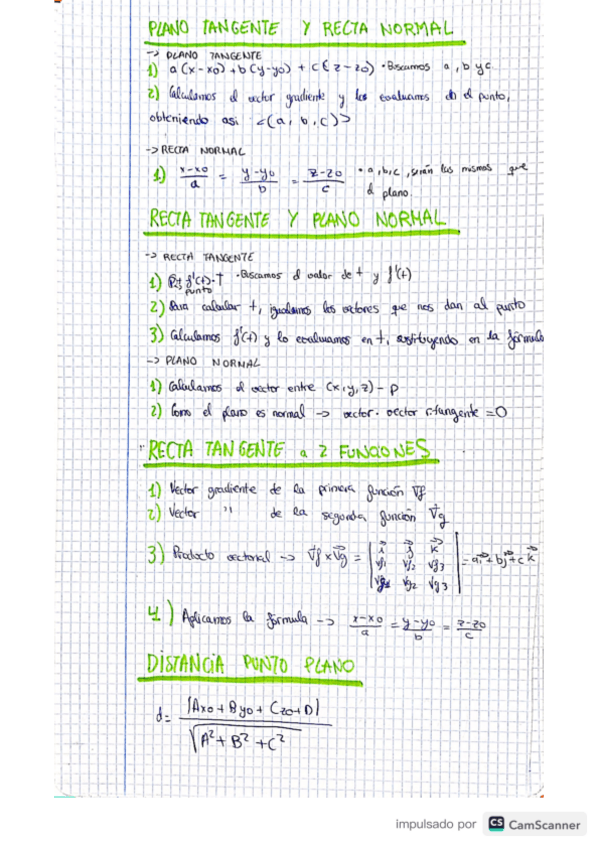 PLANO TANGENTE Y RECTA NORMAL
-> PLANO TANGENTE
1) a(x-x0)+b(y-y0)+c(z-z0) • Buscamos a, b y c.
2) Calculamos el vector gradiente y los evaluamos en el punto,
obteniendo así <(a, b, c)>
-> RECTA NORMAL
1) x-x0/a = y-y0/b = z-z0/c • a, b, c, serán las mismas que
el plano.
RECTA TANGENTE Y PLANO NORMAL
-> RECTA TANGENTE
1) f'(t)·t • Buscamos el valor de t y f'(t)
punto
2) Para calcular t, igualamos los vectores que nos dan al punto
3) Calculamos f'(t) y lo evaluamos en t, sustituyendo en la fórmula
-> PLANO NORMAL
1) Calculamos el vector entre (x,y,z) - P
2) Como el plano es normal -> vector · vector r.tangente = 0
RECTA TANGENTE a 2 FUNCIONES
1) Vector gradiente de la primera función ∇f
2) Vector " de la segunda función ∇g
3) Producto vectorial -> ∇f x ∇g = | i j k | = ai + bj + ck
∇f1 ∇f2 ∇g3
∇g1 ∇g2 ∇g3
4) Aplicamos la fórmula -> x-x0/a = y-y0/b = z-z0/c
DISTANCIA PUNTO PLANO
d= |Ax0 + By0 + Cz0 + D|
√A²+B²+C²
impulsado por CS CamScanner